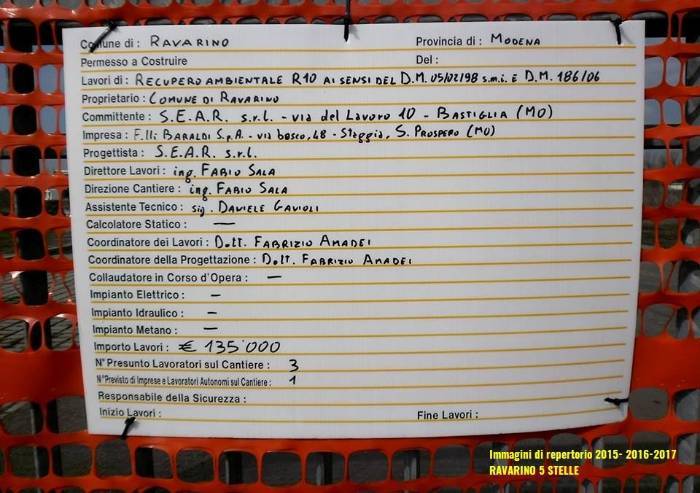 Comune di : RAVARINO Provincia di : MODENA
Permesso a Costruire Del :
Lavori di : RECUPERO AMBIENTALE R10 AI SENSI DEL D.M. 05/02/98 s.m.i. E D.M. 186/06
Proprietario : COMUNE DI RAVARINO
Committente : S.E.A.R. s.r.l. - via del Lavoro 10 - BASTIGLIA (MO)
Impresa : F.lli BARALDI S.p.A. - via bosco, 48 - Staggia, S. PROSPERO (MO)
Progettista : S.E.A.R. s.r.l.
Direttore Lavori : ing. FABIO SALA
Direzione Cantiere : ing. FABIO SALA
Assistente Tecnico : sig. DANIELE GAVIOLI
Calcolatore Statico : —
Coordinatore dei Lavori : Dott. FABRIZIO AMADEI
Coordinatore della Progettazione : Dott. FABRIZIO AMADEI
Collaudatore in Corso d'Opera : —
Impianto Elettrico : —
Impianto Idraulico : —
Impianto Metano : —
Importo Lavori : € 135'000
N° Presunto Lavoratori sul Cantiere : 3
N° Previsto di Imprese e Lavoratori Autonomi sul Cantiere : 1
Responsabile della Sicurezza :
Inizio Lavori : Fine Lavori :
Immagini di repertorio 2015- 2016-2017
RAVARINO 5 STELLE